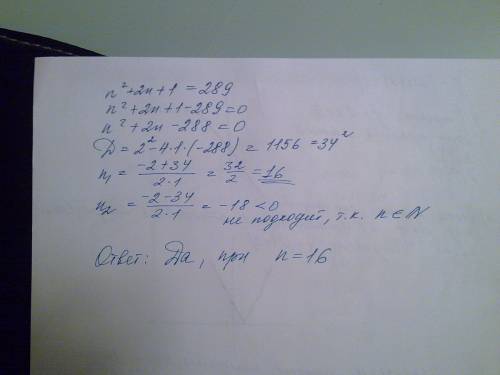 n²+2n+1 = 289
n²+2n+1-289=0
n²+2n-288=0
D = 2²-4·1·(-288) = 1156 = 34²
n₁ = (-2+34)/(2·1) = 32/2 = 16
n₂ = (-2-34)/(2·1) = -18 < 0
не подходит, т.к. n ∈ N
Ответ: Да, при n=16